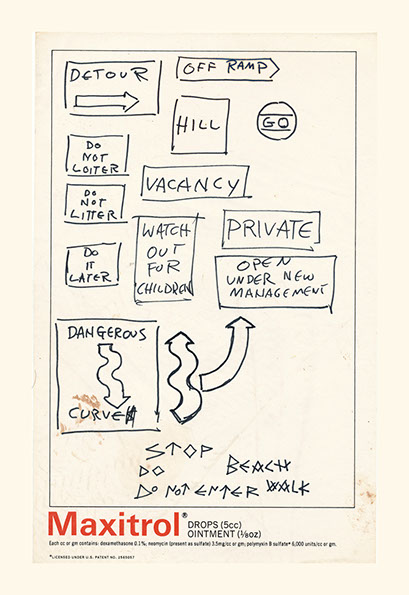 DETOUR
OFF RAMP
HILL
GO
DO
NOT
LOITER
DO
NOT
LITTER
DO
IT
LATER
VACANCY
WATCH
OUT
FOR
CHILDREN
PRIVATE
OPEN
UNDER NEW
MANAGEMENT
DANGEROUS
CURVE
STOP
DO
BEACH
DO NOT ENTER WALK
Maxitrol® DROPS (5cc)
OINTMENT (1/8oz)
Each cc or gm contains: dexamethasone 0.1%; neomycin (present as sulfate) 3.5mg/cc or gm; polymyxin B sulfate* 6,000 units/cc or gm.
*LICENSED UNDER U.S. PATENT NO. 2565057